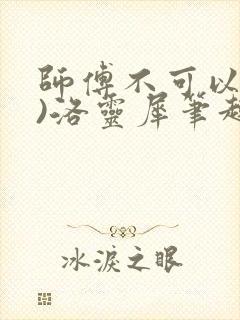 師傅不可以
)洛靈犀筆趣
冰淚之眼